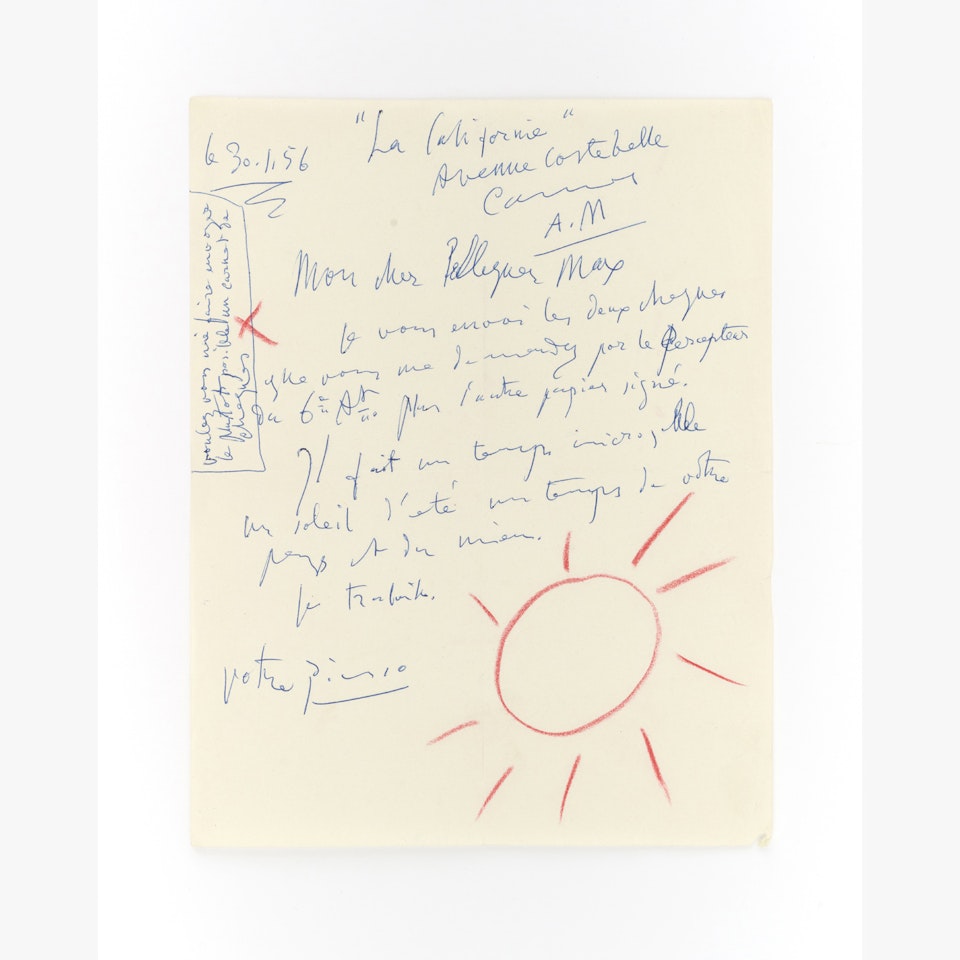 le 30.1.56
"La Californie"
Avenue Costebelle
Cannes
A.M
Mon cher Pellequer Max
Je vous envoi les deux cheques
que vous me demandez por le Percepteur
du 6e Art plus l'autre papier signé.
Il fait un temps incroyable
un soleil d'été un temps de votre
pays et du mien.
je travaille.
votre Picasso
voulez vous me faire envoyer
le plutot posible un carnet de
cheques